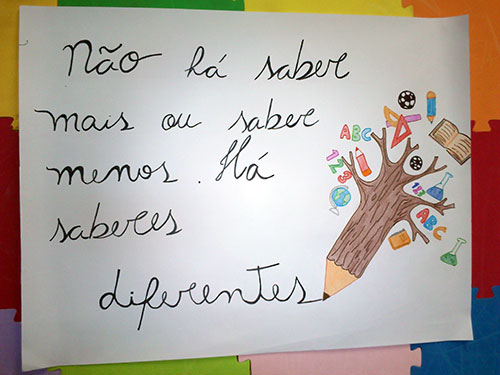 Não há saber
mais ou saber
menos. Há
saberes
diferentes
ABC
123
123
ABC